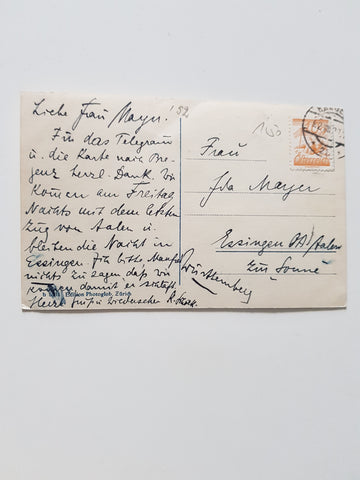 Liebe Frau Mayer!
Für das Telegram
u. die Karte nach Bre-
genz herzl. Dank. Wir
kommen am Freitag
Nachts mit dem letzten
zug von Aalen u.
bleiben die Nacht in
Essingen. Ich bitte
nichts zu sagen, daß wir
kommen damit er schläft.
Herzl.
Edition Photoglob, Zürich
Frau
Ida Mayer
Essingen OA/Aalen
zur Sonne
Württemberg